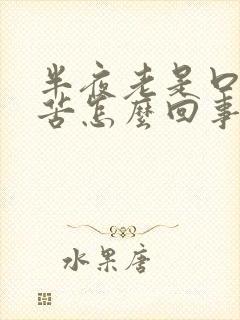 半夜老是口
苦怎麼回事
水果唐